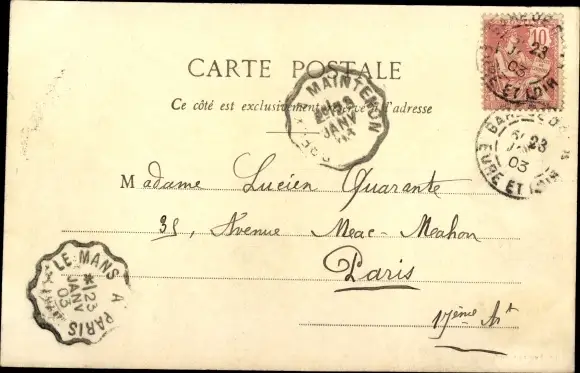 CARTE POSTALE
Ce côté est exclusivement réservé à l'adresse
Madame Lucien Quarante
31, Avenue Mac-Mahon
Paris
17ème Art
10
23
03
EURE ET LOIR
23
03
EURE ET LOIR
MAINTENON
JANV
03
LE MANS A PARIS
23
JANV
03